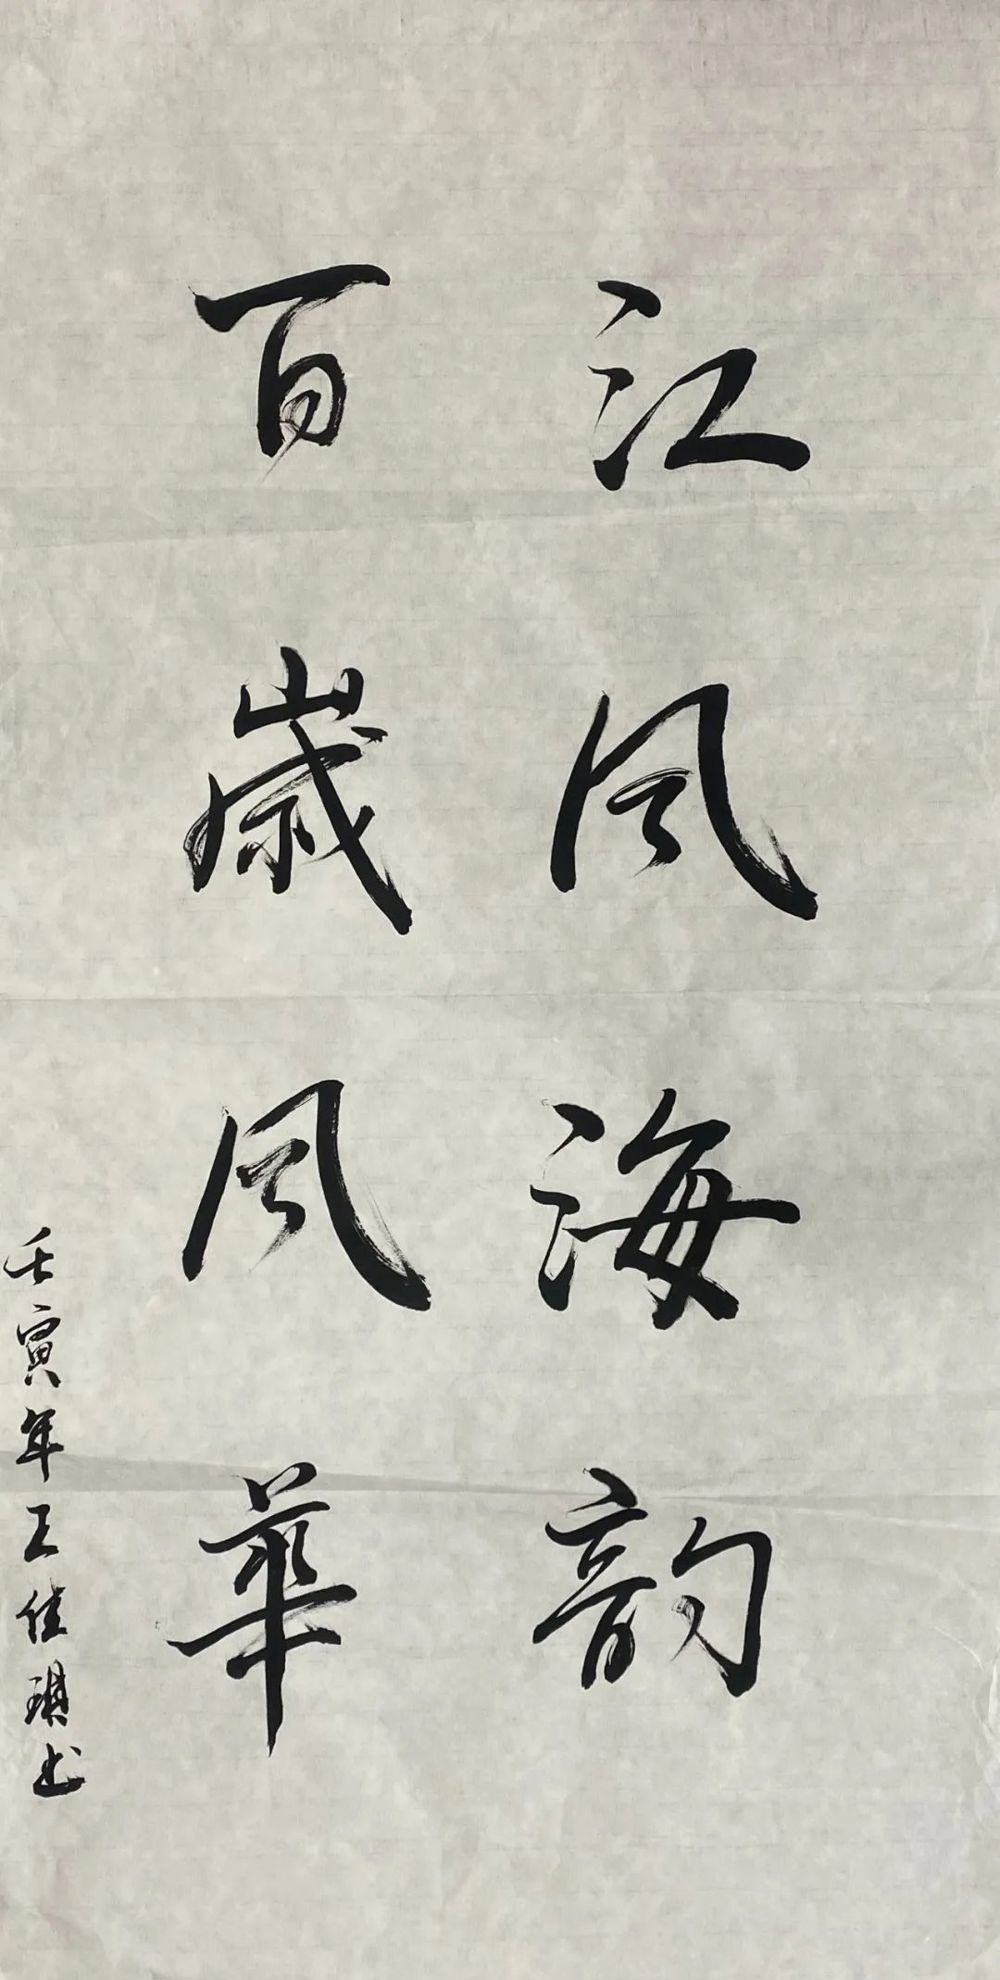 江风海韵
百歲风華
壬寅年王佳琪书